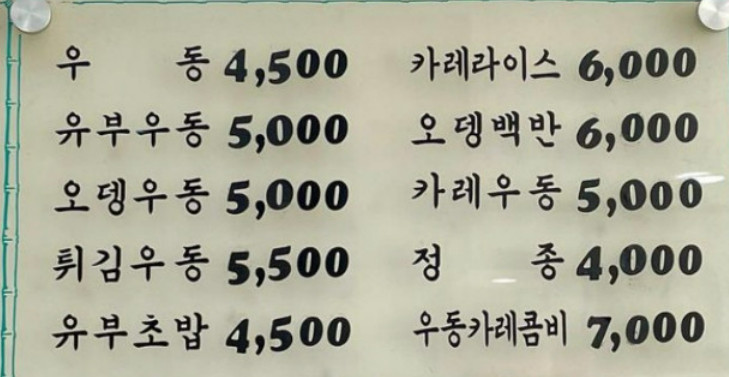 우 동 4,500
유부우동 5,000
오뎅우동 5,000
튀김우동 5,500
유부초밥 4,500
카레라이스 6,000
오뎅백반 6,000
카레우동 5,000
정 종 4,000
우동카레콤비 7,000